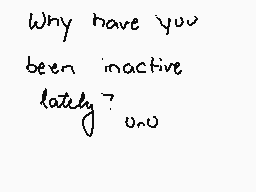 Why have you
been inactive
lately?
UnU